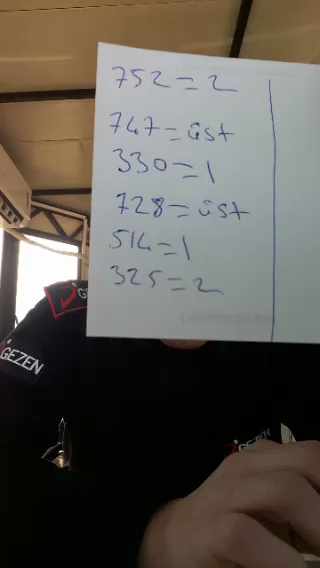 752=2
747=üst
330=1
728=üst
514=1
325=2
GEZEN
GEZEN